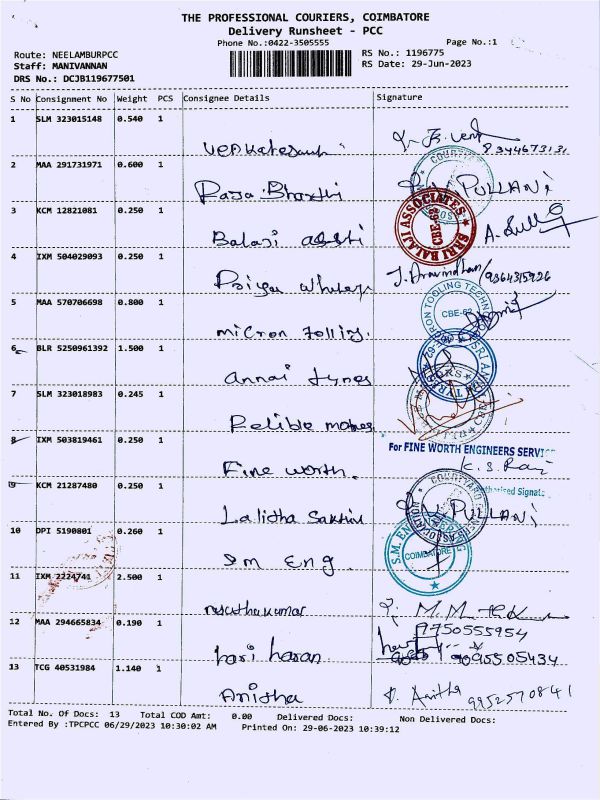 THE PROFESSIONAL COURIERS, COIMBATORE
Delivery Runsheet - PCC
Phone No.:0422-3505555 Page No.:1
Route: NEELAMBURPCC RS No.: 1196775
Staff: MANIVANNAN RS Date: 29-Jun-2023
DRS No.: DCJB119677501
S No Consignment No Weight PCS Consignee Details Signature
1 SLM 323015148 0.540 1
8344673131
2 MAA 291731971 0.600 1
PULLANi
3 KCM 12821081 0.250 1
SRRI BALAJI ASSOCIATES CBE-62
Balaji
4 IXM 504029093 0.250 1
J. Aravindhan
Priya
5 MAA 570706698 0.800 1
CBE-62
micron
6 BLR 5250961392 1.500 1
annai tyres
7 SLM 323018983 0.245 1
Relible
8 IXM 503819461 0.250 1
For FINE WORTH ENGINEERS SERVIC
K. S. Raj
Fine worth.
9 KCM 21287480 0.250 1
Authorised Signato
Lalitha PULLANi
10 DPI 5190801 0.260 1
S.M. ENG
COIMBATORE
Sm Eng.
11 IXM 2224741 2.500 1
12 MAA 294665834 0.190 1
9750555954
hari haran 9095505434
13 TCG 40531984 1.140 1
Anitha 9952570841
Total No. Of Docs: 13 Total COD Amt: 0.00 Delivered Docs: Non Delivered Docs:
Entered By :TPCPCC 06/29/2023 10:30:02 AM Printed On: 29-06-2023 10:39:12